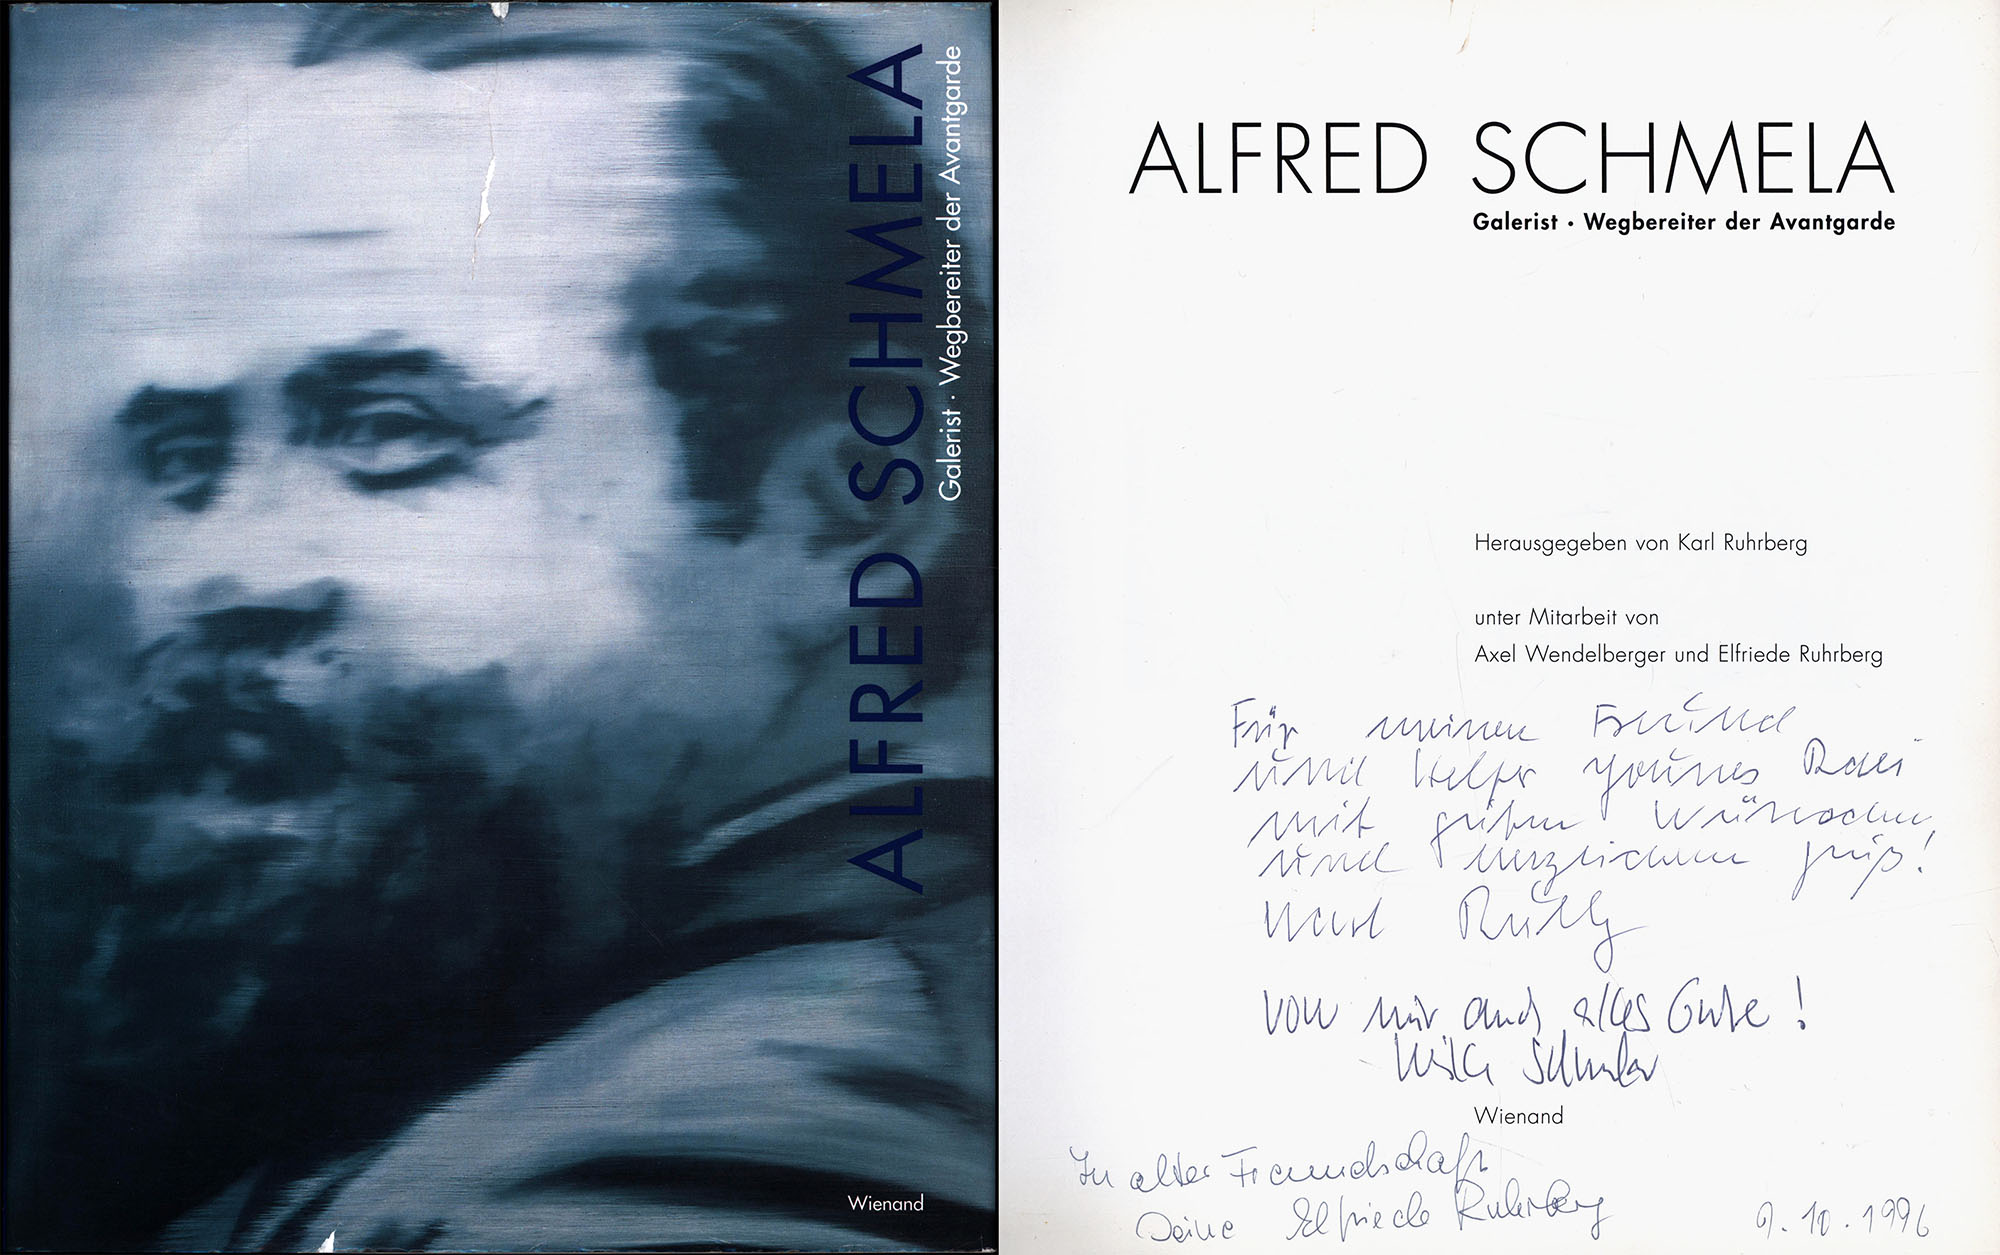 ALFRED SCHMELA
Galerist · Wegbereiter der Avantgarde
Wienand
ALFRED SCHMELA
Galerist · Wegbereiter der Avantgarde
Herausgegeben von Karl Ruhrberg
unter Mitarbeit von
Axel Wendelberger und Elfriede Ruhrberg
Für meinen Freund
und Helfer Younes
mit guten Wünschen
und herzlichem Gruß!
Karl
von mir auch alles Gute!
Wienand
In alter Freundschaft
Deine Elfriede Ruhrberg
9.10.1996